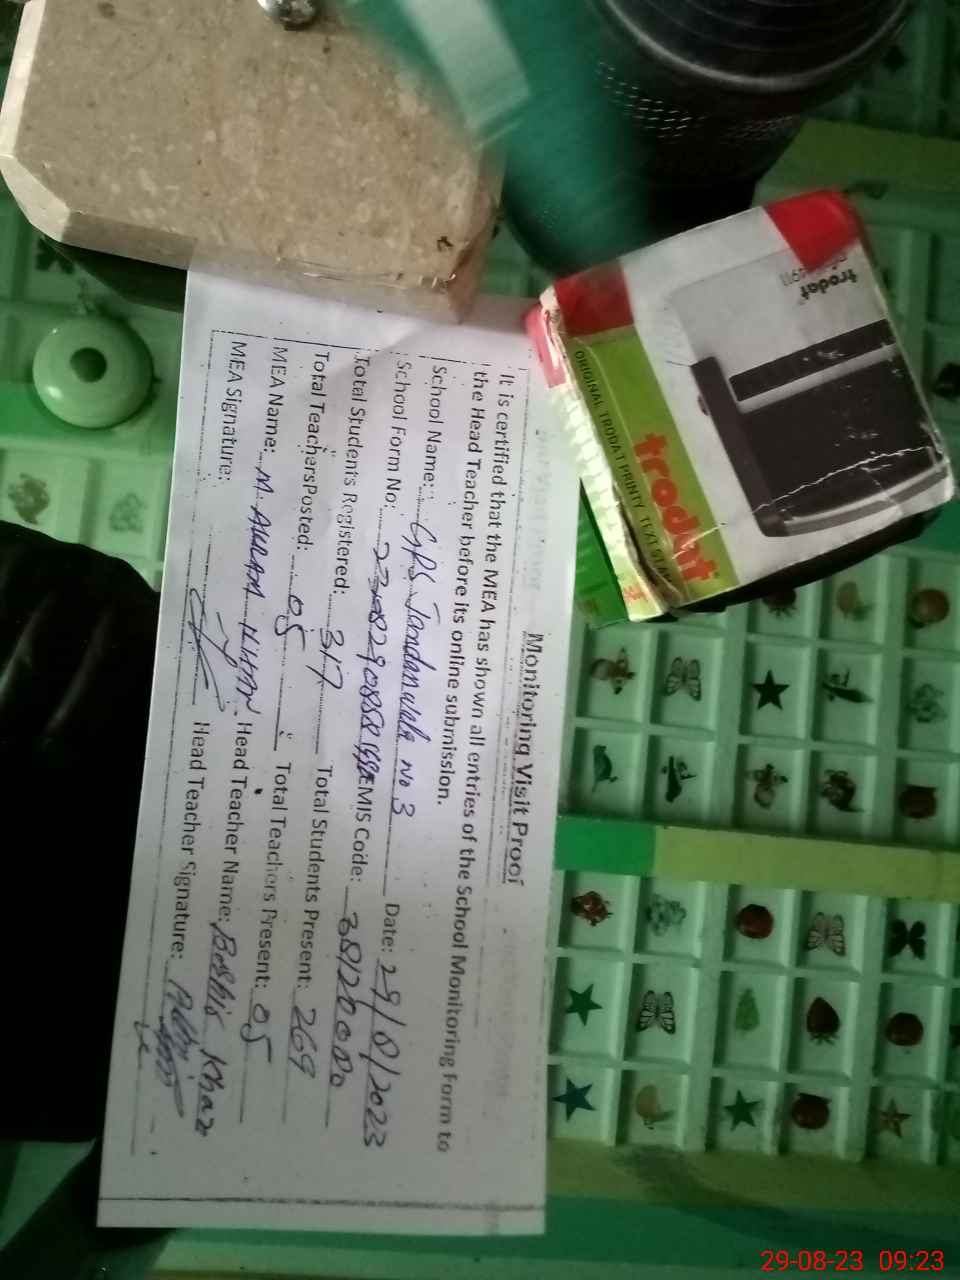 Monitoring Visit Proof
It is certified that the MEA has shown all entries of the School Monitoring Form to
the Head Teacher before its online submission.
School Name: GPS Tandanwala no 3 Date: 29/8/2023
School Form No: EMIS Code:
Total Students Registered: 317 Total Students Present: 269
Total Teachers Posted: 05 Total Teachers Present: 05
MEA Name: M. AKRAM KHAN Head Teacher Name: Khan
MEA Signature: Head Teacher Signature:
trodat
ORIGINAL TRODAT PRINTY TEXT
trodat
29-08-23 09:23